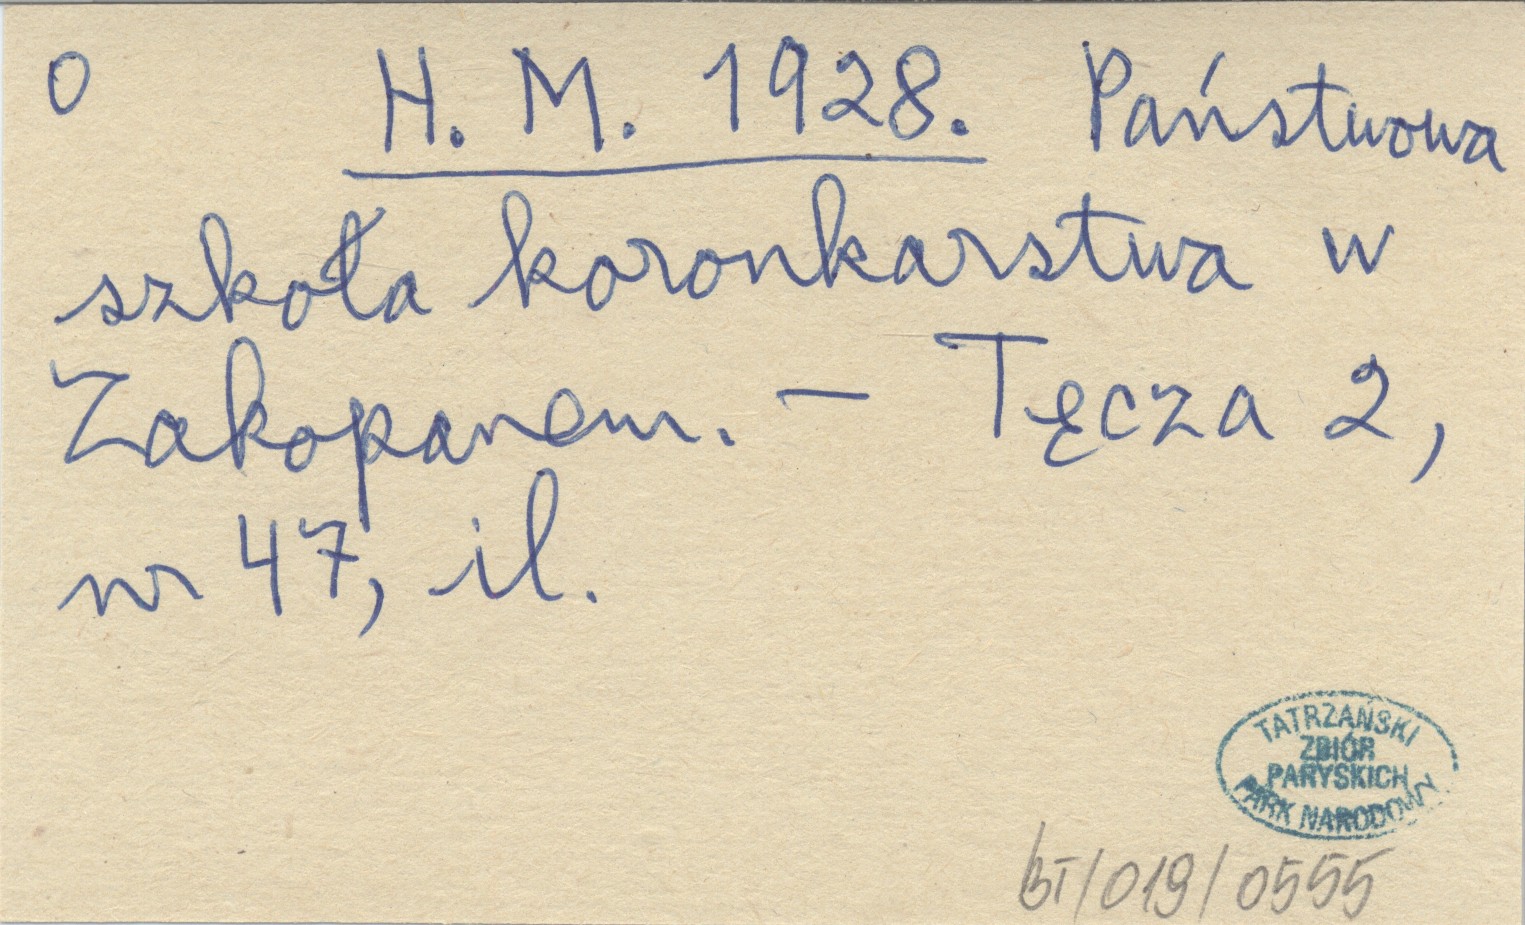 O H. M. 1928. Państwowa
szkoła koronkarstwa w
Zakopanem. — Tęcza 2,
nr 47, il.
TATRZAŃSKI
ZBIÓR
PARYSKICH
PARK NARODOWY
BT/019/0555